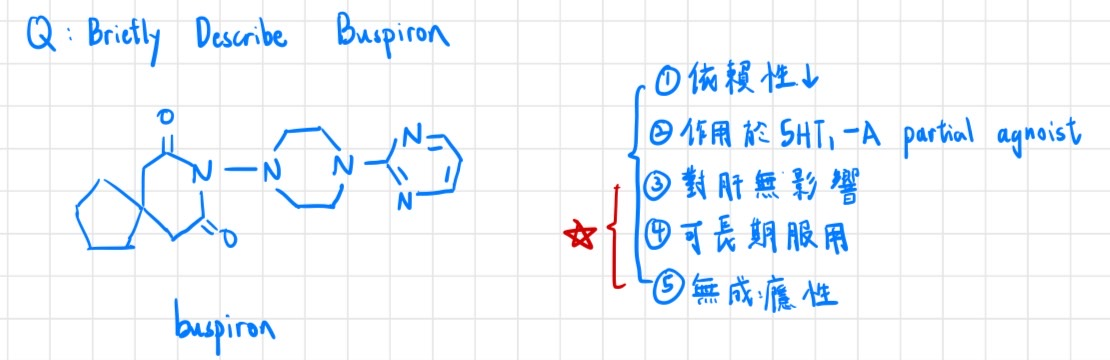 Q : Briefly Describe Buspiron
O
N
N
N
N
N
O
buspiron
① 依賴性↓
② 作用於 5HT₁-A partial agnoist
③ 對肝無影響
④ 可長期服用
⑤ 無成癮性